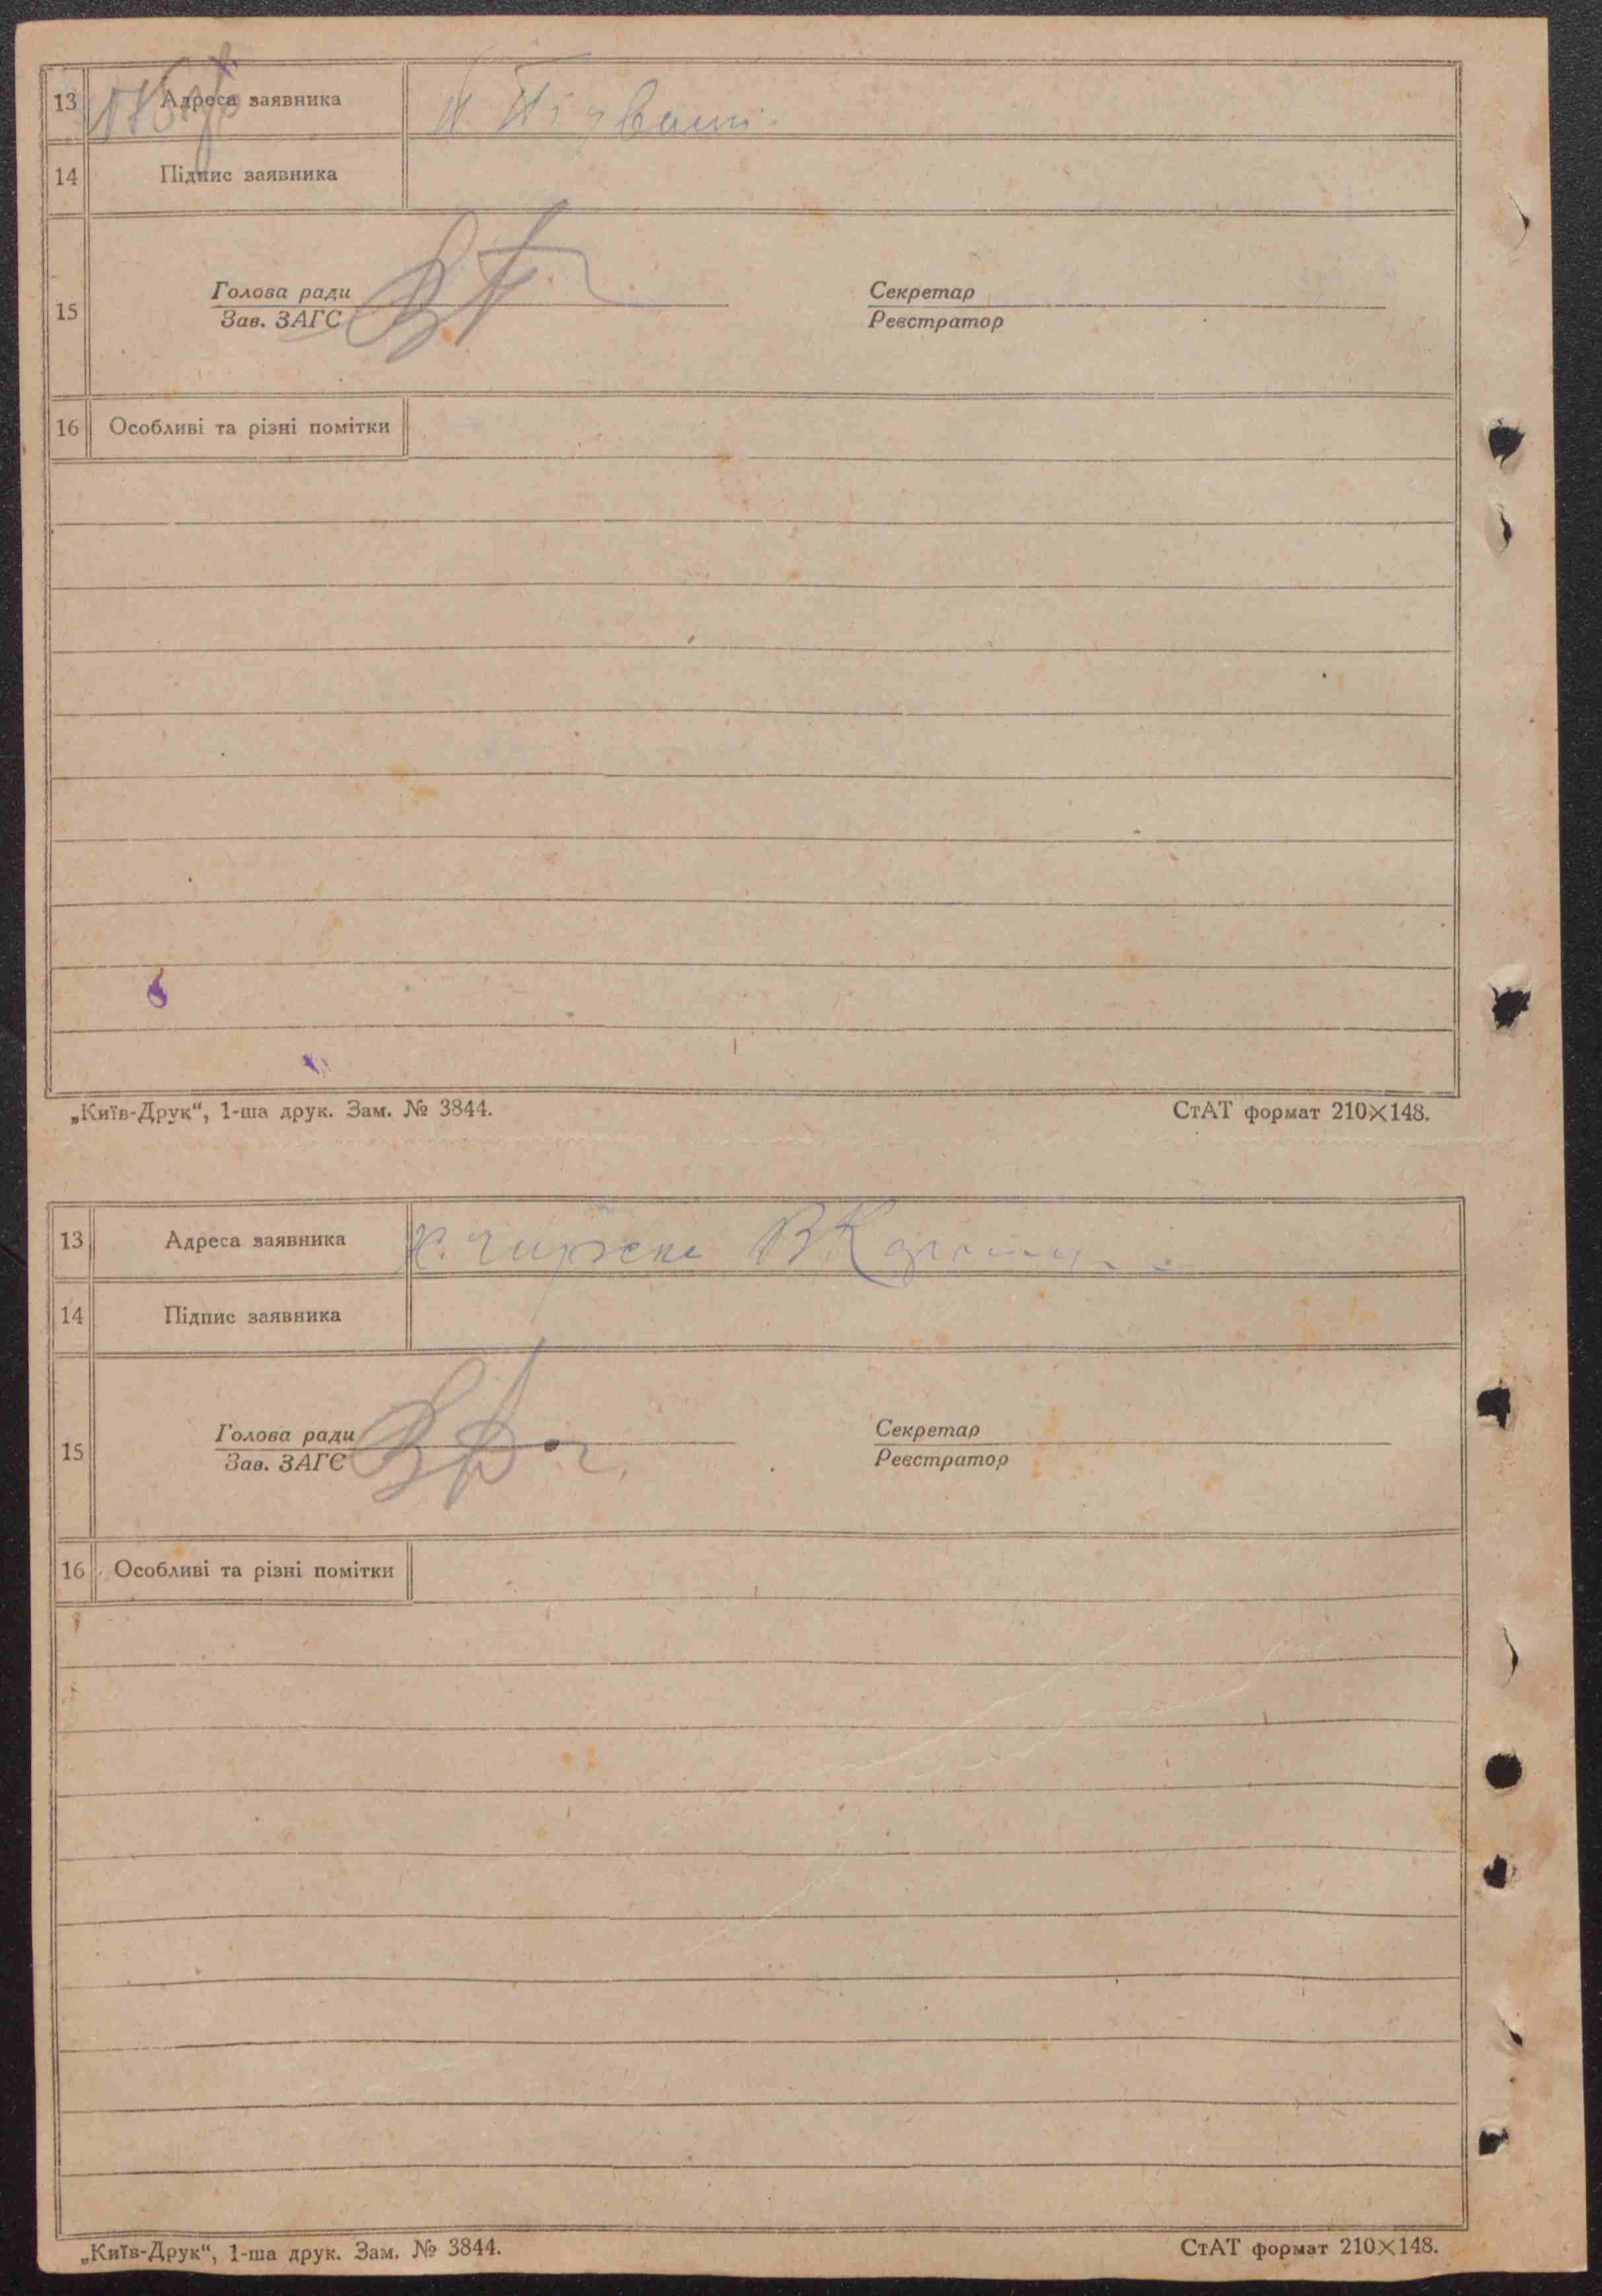 13 Адреса заявника
14 Підпис заявника
15 Голова ради
Зав. ЗАГС
Секретар
Реєстратор
16 Особливі та різні помітки
„Київ-Друк“, 1-ша друк. Зам. № 3844. СтАТ формат 210×148.
13 Адреса заявника
14 Підпис заявника
15 Голова ради
Зав. ЗАГС
Секретар
Реєстратор
16 Особливі та різні помітки
„Київ-Друк“, 1-ша друк. Зам. № 3844. СтАТ формат 210×148.